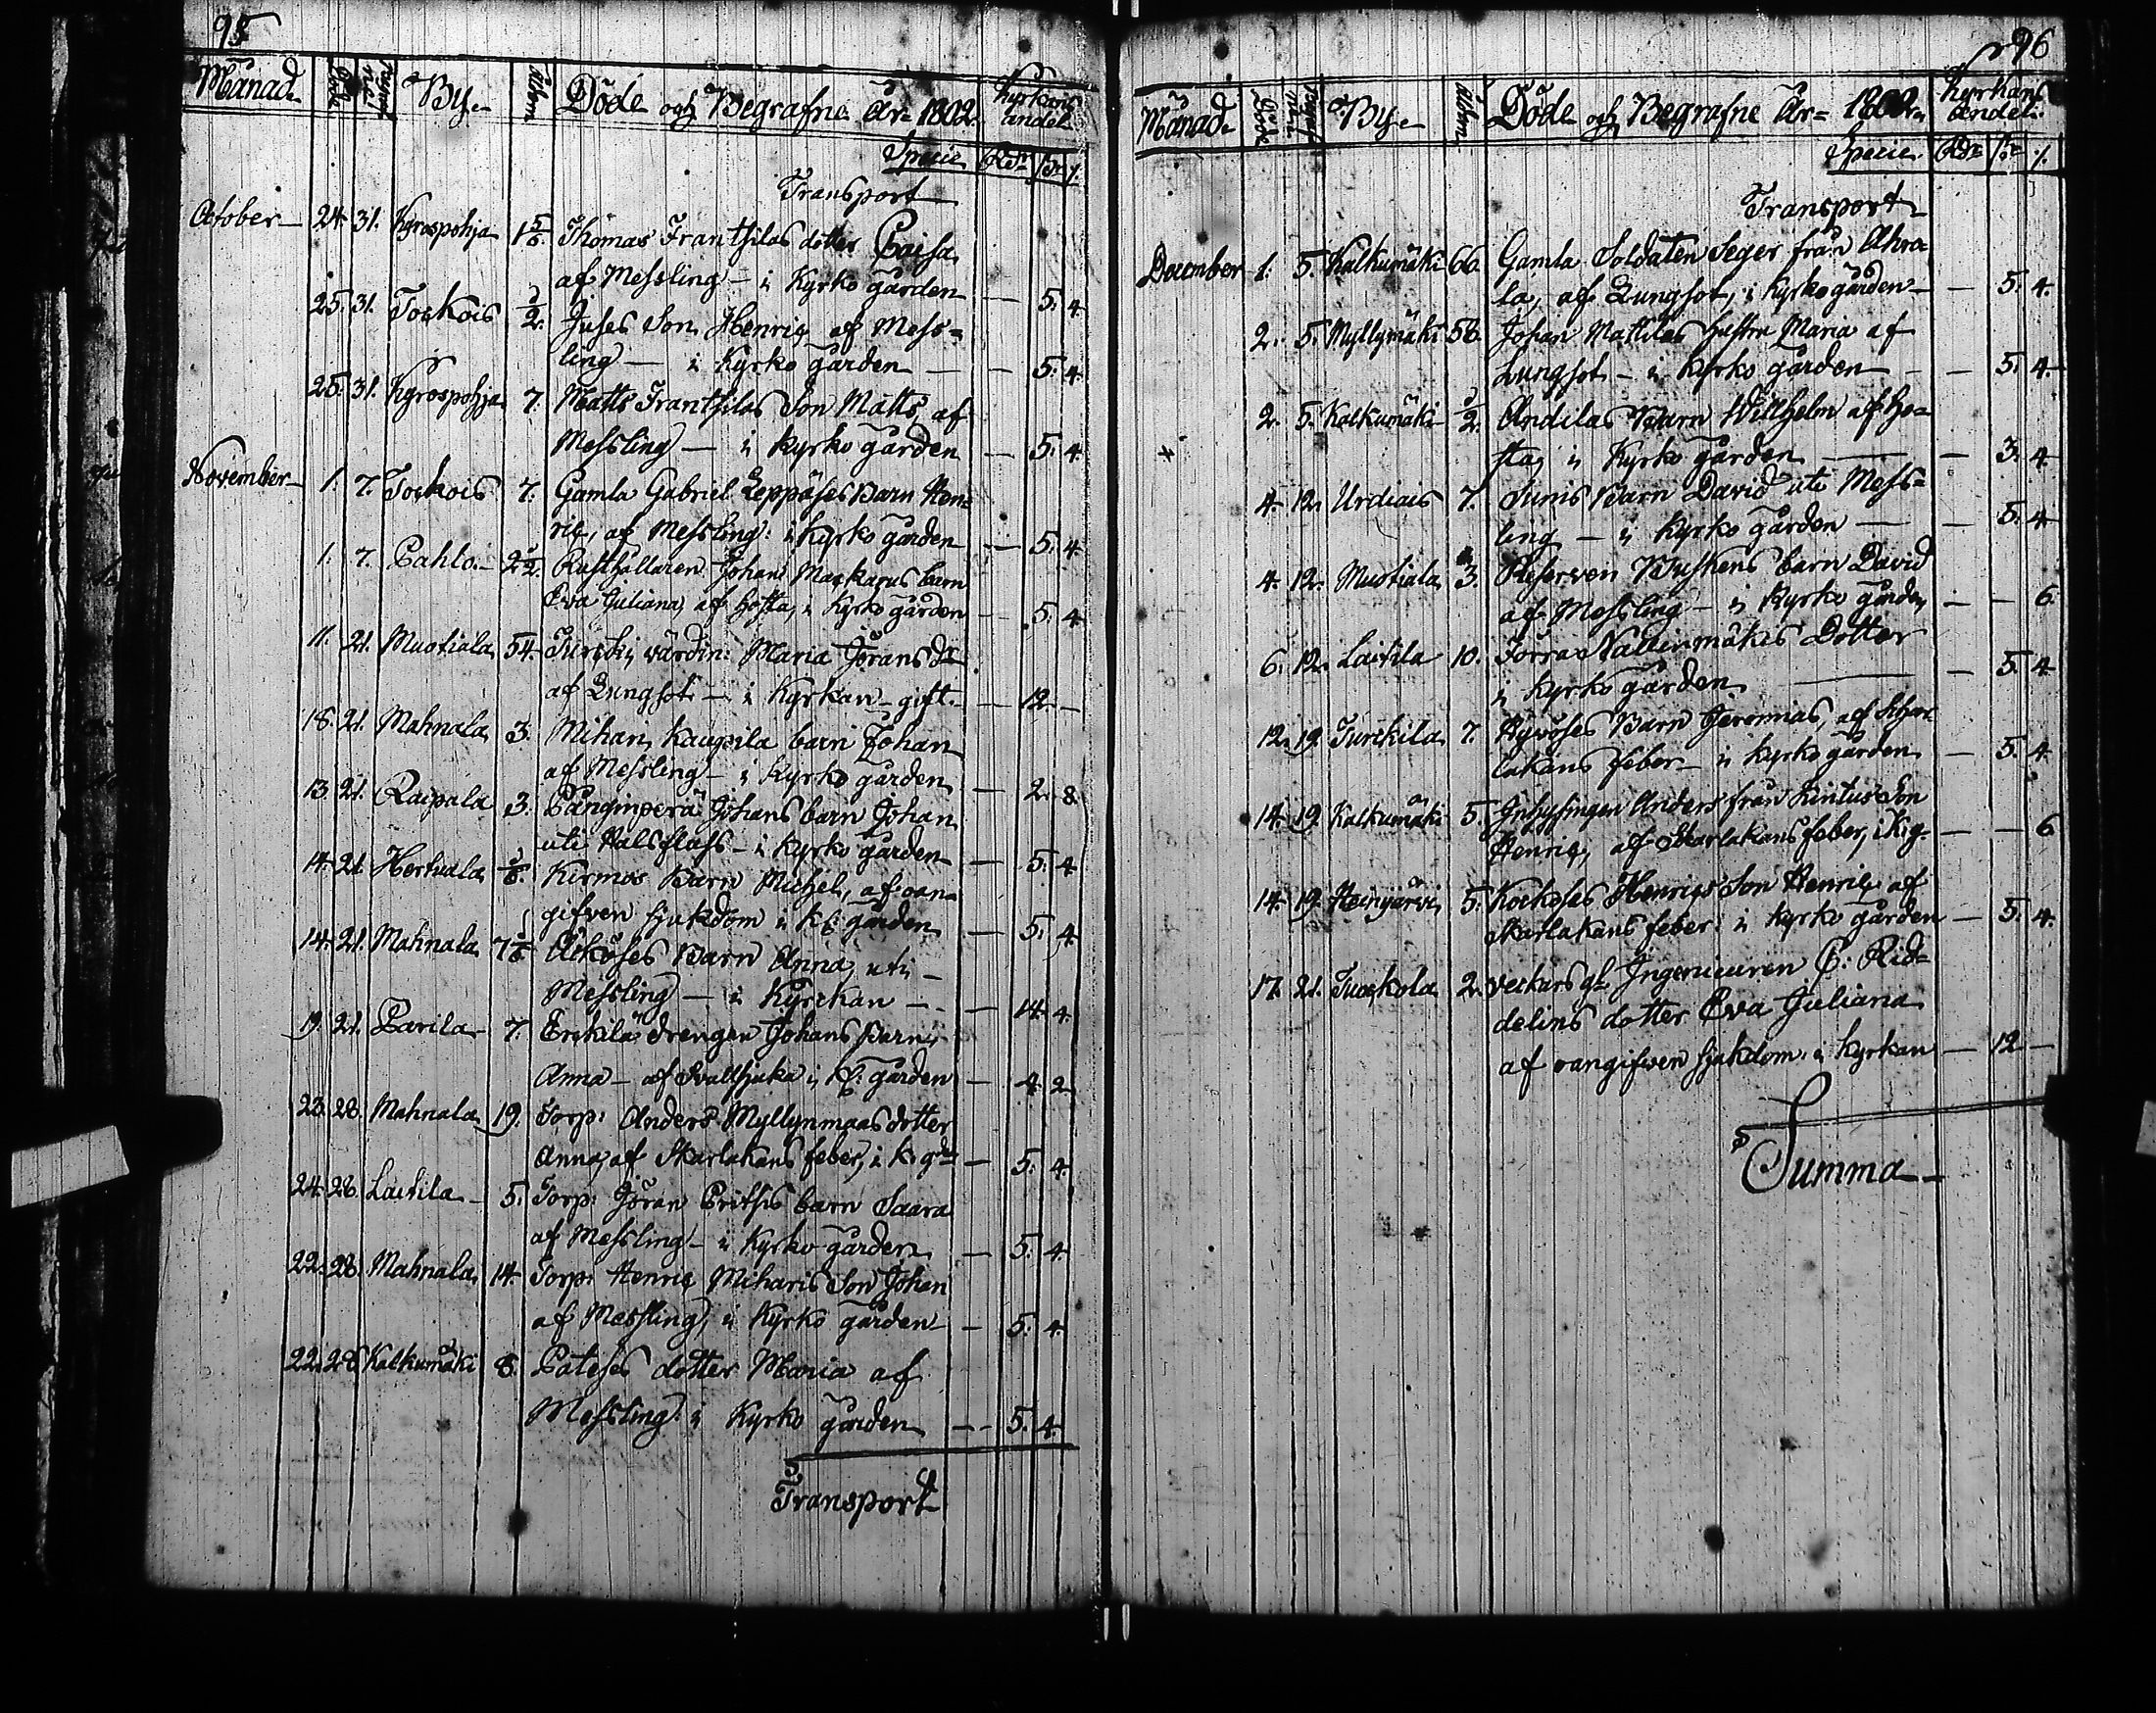 95
Månad By Ålder Döde och Begrafne År= 1802. Kyrkans andel
Specie Rdr ß r
Transport
October 24. 31. Kyrospohja 1 5/6. Thomas Franthilas dotter Caisa
af Messling i Kyrko gården — 5. 4
25. 31. Tockois 1/2. Juses Son Henric af Mess=
ling — i Kyrko gården — 5. 4.
25. 31. Kyrospohja 7. Matts Franthilas Son Matts af
Messling — i Kyrko gården — 5. 4
November 1. 7. Tockois 7. Gamla Gabriel Leppäses Barn Hen=
ric, af Messling: i Kyrko gården — 5. 4
1. 7. Pahlo 2 1/2. Rusthållaren Johan Mackarus barn
Eva Juliana af hosta, i Kyrko gården — 5. 4
11. 21. Muotiala 54. Turcki wärdin: Maria Jörans dr
af Lungsot — i Kyrkan gift. — 12 —
18. 21. Mahnala 3. Mihari Kaupila barn Johan
af Messling — i Kyrko gården — 2. 8
13. 21. Raipala 3. Pånginperä Johans barn Johan
uti Halsflass — i Kyrko gården — 5. 4
14. 21. Hertuala Kirmos Barn Michel, af oan=
gifven sjukdom i K: gården — 5. 4
14. 21. Mahnala Äköses Barn Anna uti
Messling — i Kyrckan — 14 4.
19. 21. Parila 7. Erckilä drengen Johans Barn
Anna — af i K: gården — 4 2
23. 28. Mahnala 19. Torp: Anders Myllynmaas dotter
Anna af Skarlakans feber, i K. gdn — 5. 4.
24. 28. Laitila 5. Torp: Jöran Prithis barn Saara
af Messling — i Kyrko gården — 5. 4.
22. 28. Mahnala 14. Torp: Henric Miharis Son Johan
af Messling, i Kyrko gården — 5. 4.
22. 28. Kalkumäki 8. Pateses dotter Maria af
Messling i Kyrko gården — 5. 4.
Transport
96
Månad Döde By Ålder Döde och Begrafne År= 1802. Kyrkans Andel:
Specie Rdr ß r
Transport
December 1. 5. Kalkumäki 66. Gamla Soldaten Seger från Ahro
la, af Lungsot, i Kyrko gården — 5. 4.
2. 5. Myllymäki 58. Johan Mattilas hustru Maria af
Lungsot — i Kyrko gården — 5. 4
2. 5. Kalkumäki 1/2. Andilas Barn Willhelm af ho=
sta, i Kyrko gården — 3. 4.
4. 12. Urdiais 7. Junis Barn David uti Mess=
ling — i Kyrko gården — 5. 4
4. 12. Muotiala 3. Reserven Buskens barn David
af Messling — i Kyrko gården — — 6.
6. 12. Laitila 10. Torra Nallinmäkis Dotter
i Kyrko gården — 5. 4
12. 19. Turckila 7. Hywöses Barn Jeronmas, af Skar
lakans feber — i Kyrko gården — 5. 4.
14. 19. Kalkumäki 5. Inhysingen Anders från Kintus Son
Henric, af Skarlakans feber, i K:g. — — 6
14. 19. Heinijärvi 5. Kockoses Henrics Son Henric af
Skarlakans feber: i Kyrko gården — 5. 4.
17. 21. Tuockola 2. veckors gl. Ingenieuren C: Rid=
delins dotter Eva Juliana
af oangifven sjukdom. i Kyrkan — 12 —
Summa